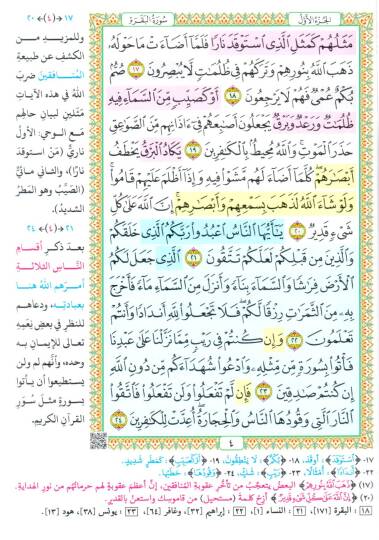 الجزء الأول
سورة البقرة
١٧ (٤) ٢٠
مَثَلُهُمْ كَمَثَلِ الَّذِي اسْتَوْقَدَ نَارًا فَلَمَّا أَضَاءَتْ مَا حَوْلَهُ
ذَهَبَ اللَّهُ بِنُورِهِمْ وَتَرَكَهُمْ فِي ظُلُمَاتٍ لَا يُبْصِرُونَ ١٧ صُمٌّ
بُكْمٌ عُمْيٌ فَهُمْ لَا يَرْجِعُونَ ١٨ أَوْ كَصَيِّبٍ مِنَ السَّمَاءِ فِيهِ
ظُلُمَاتٌ وَرَعْدٌ وَبَرْقٌ يَجْعَلُونَ أَصَابِعَهُمْ فِي آذَانِهِمْ مِنَ الصَّوَاعِقِ
حَذَرَ الْمَوْتِ وَاللَّهُ مُحِيطٌ بِالْكَافِرِينَ ١٩ يَكَادُ الْبَرْقُ يَخْطَفُ
أَبْصَارَهُمْ كُلَّمَا أَضَاءَ لَهُمْ مَشَوْا فِيهِ وَإِذَا أَظْلَمَ عَلَيْهِمْ قَامُوا
وَلَوْ شَاءَ اللَّهُ لَذَهَبَ بِسَمْعِهِمْ وَأَبْصَارِهِمْ إِنَّ اللَّهَ عَلَى كُلِّ
شَيْءٍ قَدِيرٌ ٢٠ يَا أَيُّهَا النَّاسُ اعْبُدُوا رَبَّكُمُ الَّذِي خَلَقَكُمْ
وَالَّذِينَ مِنْ قَبْلِكُمْ لَعَلَّكُمْ تَتَّقُونَ ٢١ الَّذِي جَعَلَ لَكُمُ
الْأَرْضَ فِرَاشًا وَالسَّمَاءَ بِنَاءً وَأَنْزَلَ مِنَ السَّمَاءِ مَاءً فَأَخْرَجَ
بِهِ مِنَ الثَّمَرَاتِ رِزْقًا لَكُمْ فَلَا تَجْعَلُوا لِلَّهِ أَنْدَادًا وَأَنْتُمْ
تَعْلَمُونَ ٢٢ وَإِنْ كُنْتُمْ فِي رَيْبٍ مِمَّا نَزَّلْنَا عَلَى عَبْدِنَا
فَأْتُوا بِسُورَةٍ مِنْ مِثْلِهِ وَادْعُوا شُهَدَاءَكُمْ مِنْ دُونِ اللَّهِ
إِنْ كُنْتُمْ صَادِقِينَ ٢٣ فَإِنْ لَمْ تَفْعَلُوا وَلَنْ تَفْعَلُوا فَاتَّقُوا
النَّارَ الَّتِي وَقُودُهَا النَّاسُ وَالْحِجَارَةُ أُعِدَّتْ لِلْكَافِرِينَ ٢٤
٤
وللمزيد من
الكشف عن طبيعةِ
المنافقين ضربَ
اللهُ في هذه الآياتِ
مَثَلين لبيانِ حالِهم
مع الوحي: الأولُ
ناريٌّ (مَنِ استوقدَ
نارًا)، والثاني مائيٌّ
(الصَّيِّبُ وهو المطرُ
الشديدُ).
٢١ (٤) ٢٤
بعدَ ذكرِ أقسامِ
النَّاس الثلاثةِ
أمرَهم اللهُ هنا
بعبادتِه، ودعاهم
للنظرِ في بعضِ نِعَمِه
تعالى للإيمانِ به
وحدَه، وأنَّهم لم ولن
يستطيعوا أن يأتوا
بسورةٍ مثلَ سُوَرِ
القرآنِ الكريمِ.
١٧- ﴿اسْتَوْقَدَ﴾: أَوْقَدَ، ١٨- ﴿بُكْمٌ﴾: لَا يَنْطِقُونَ، ١٩- ﴿أَوْ كَصَيِّبٍ﴾: كَمَطَرٍ شَدِيدٍ،
٢٢- ﴿أَنْدَادًا﴾: أَمْثَالًا، ٢٣- ﴿رَيْبٍ﴾: شَكٍّ، ٢٤- ﴿وَقُودُهَا﴾: حَطَبُهَا.
(١٧) ﴿ذَهَبَ اللَّهُ بِنُورِهِمْ﴾ البعضُ يتعجَّبُ من تأخُّرِ عقوبةِ المنافقين، إنَّ أعظمَ عقوبةٍ لهم حرمانُهم من نورِ الهدايةِ.
(٢٠) ﴿إِنَّ اللَّهَ عَلَى كُلِّ شَيْءٍ قَدِيرٌ﴾ أزح كلمةَ (مستحيل) من قاموسِك واستعنْ بالقديرِ.
١٨: البقرة [١٧١]، ٢١: النساء [١]، ٢٢: إبراهيم [٣٢]، وغافر [٦٤]، ٢٣: يونس [٣٨]، هود [١٣].